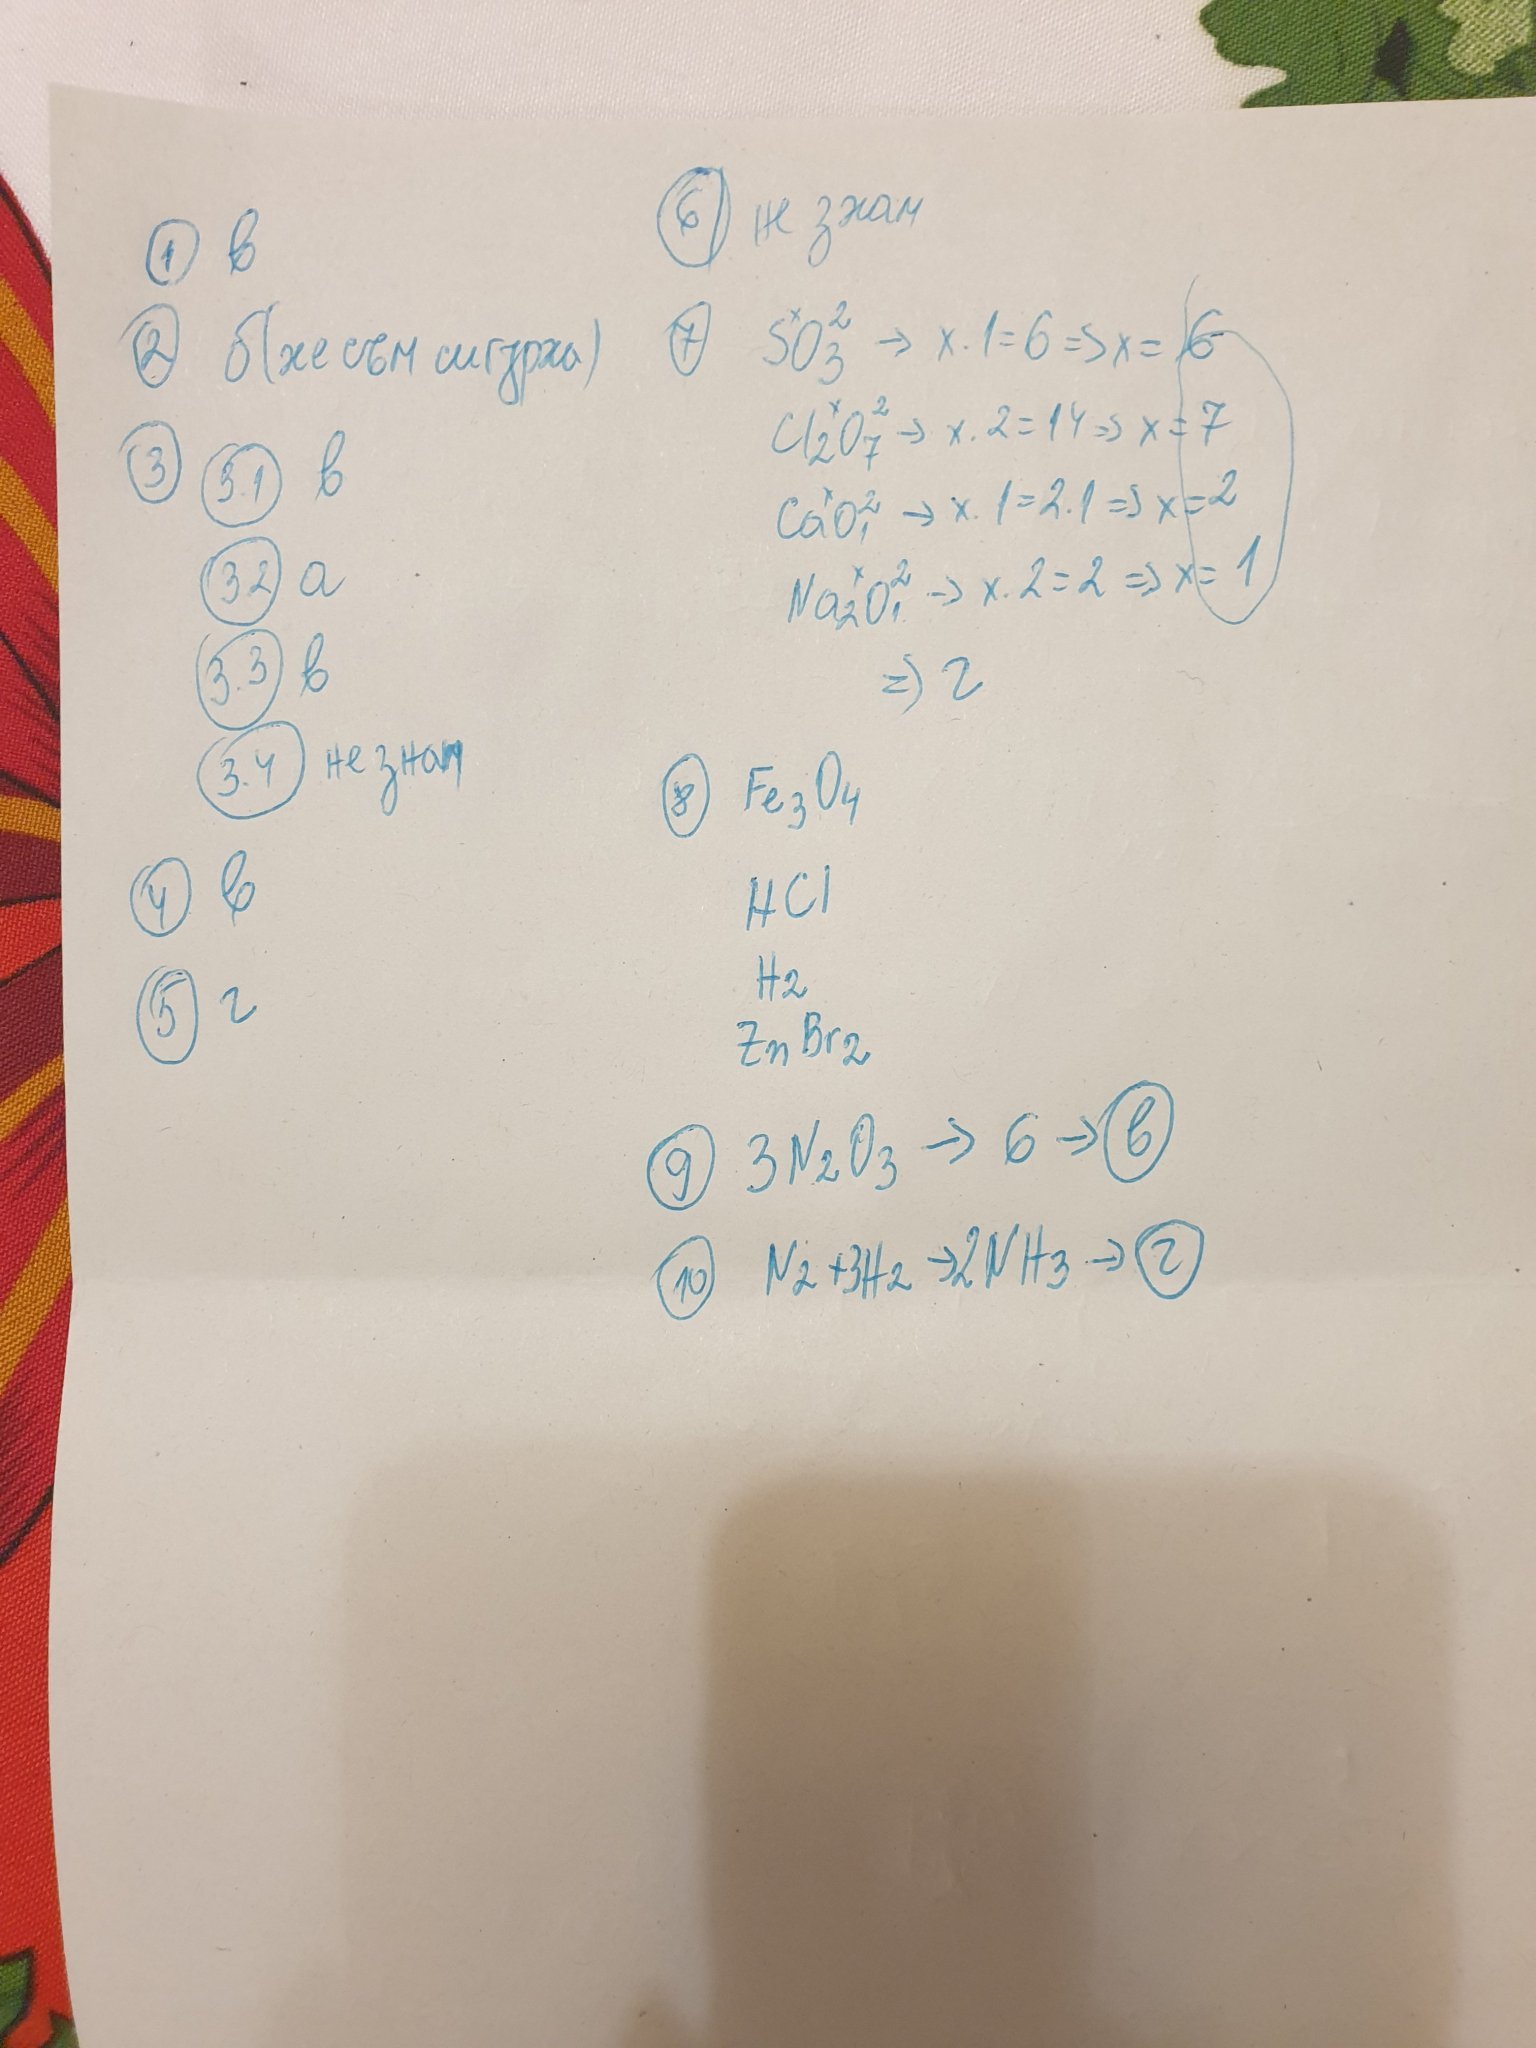 1 в
2 б(не съм сигурна)
3 3.1 в
3.2 а
3.3 в
3.4 не знам
4 в
5 г
6 не знам
7 SˣO₃² → x.1=6 => x=6
Cl₂ˣO₇² → x.2=14 => x=7
CaˣO₁² → x.1=2.1 => x=2
Na₂ˣO₁² → x.2=2 => x=1
=> г
8 Fe₃O₄
HCl
H₂
ZnBr₂
9 3N₂O₃ → 6 → в
10 N₂+3H₂ → 2NH₃ → г